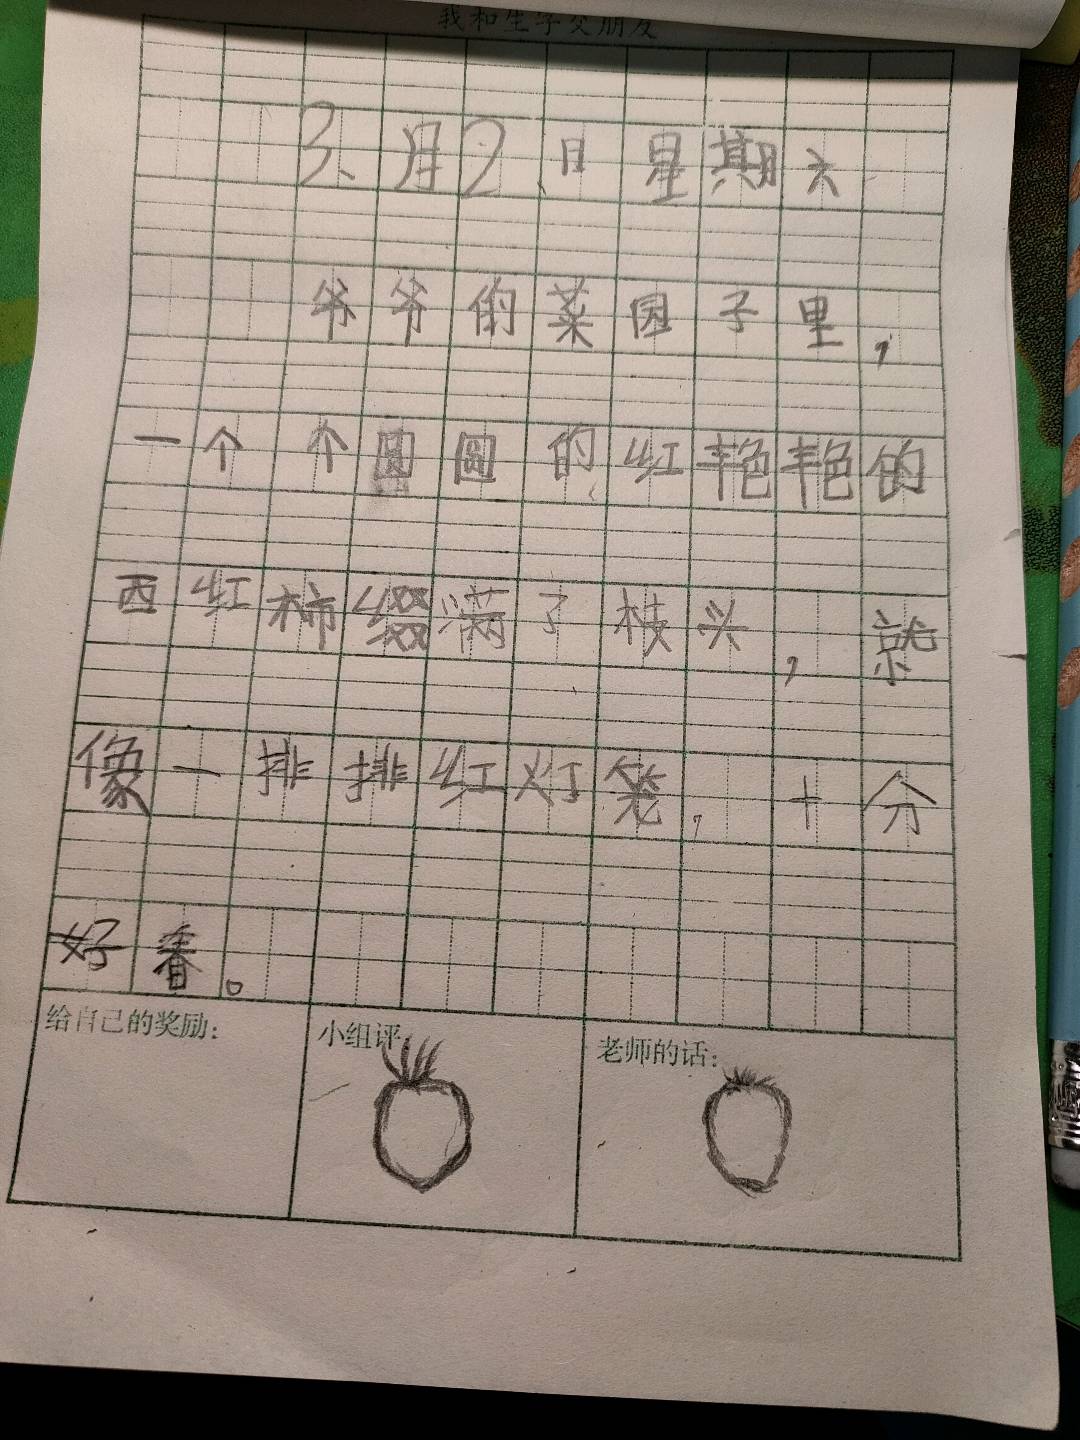 我和生字交朋友
3、月2、日星期六
爷爷的菜园子里，
一个个圆圆的红艳艳的
西红柿缀满了枝头，就
像一排排红灯笼，十分
好看。
给自己的奖励：
小组评：
老师的话：